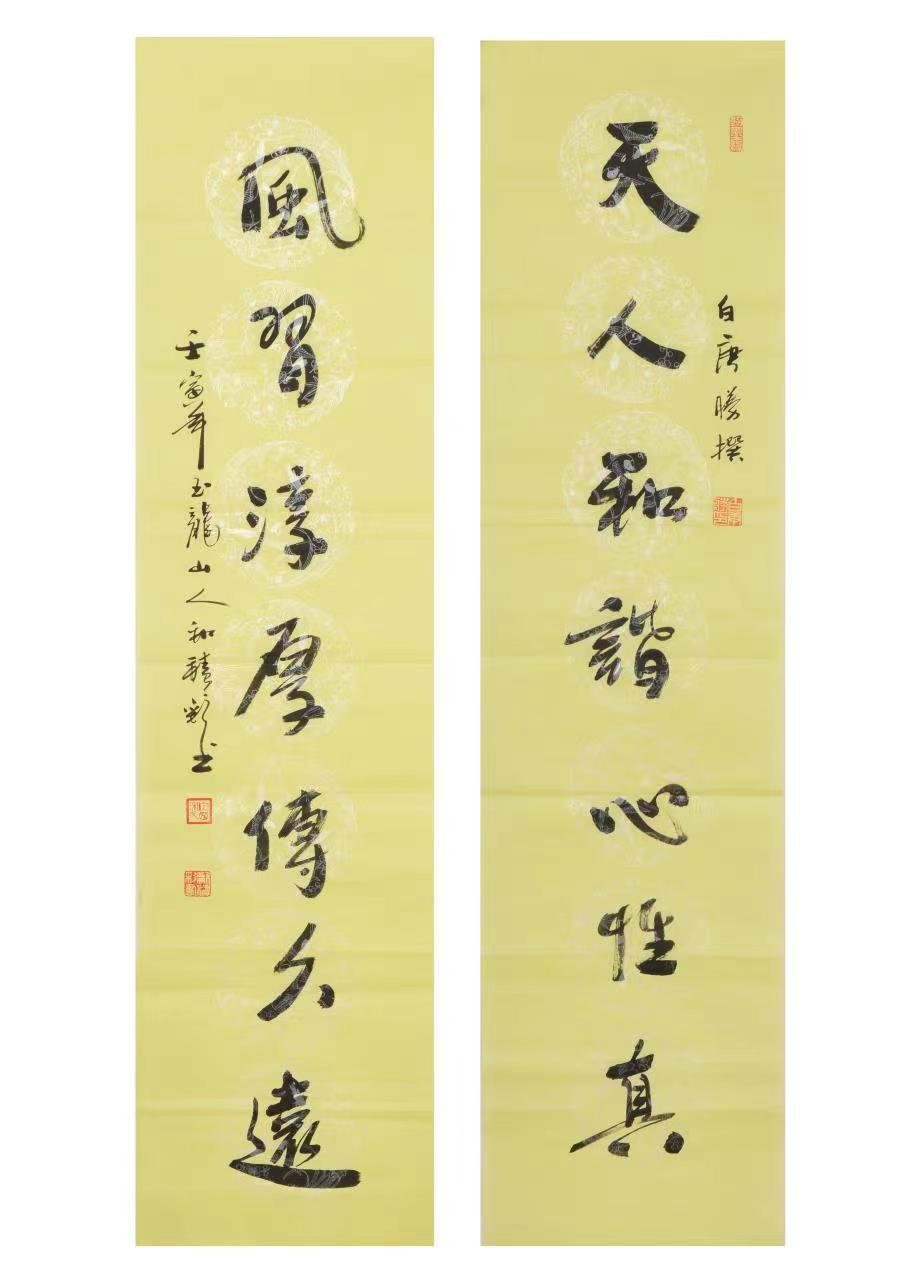 天人和諧心性真
白庚勝撰
風習淳厚傳久遠
壬寅年玉龍山人和積彩书